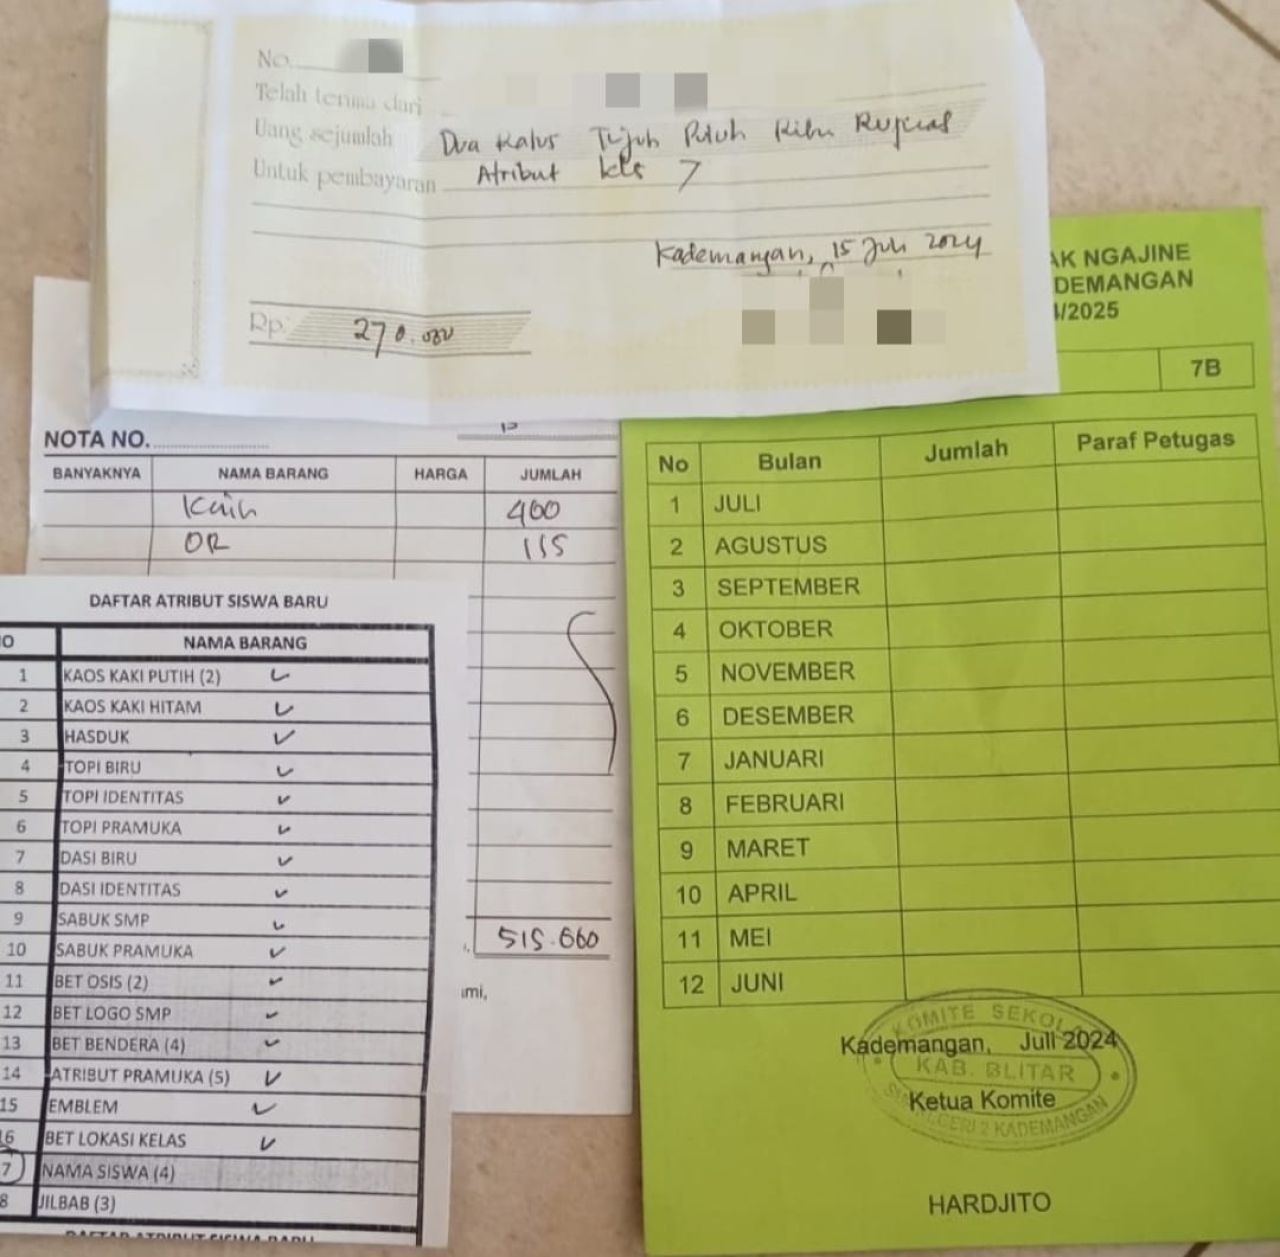 No.
Telah terima dari
Uang sejumlah Dua Ratus Tujuh Puluh Ribu Rupiah
Untuk pembayaran Atribut kls 7
Kademangan, 15 Juli 2024
Rp. 270.000
NOTA NO.
BANYAKNYA NAMA BARANG HARGA JUMLAH
Kain 400
OR 115
515.000
ami,
DAFTAR ATRIBUT SISWA BARU
NO NAMA BARANG
1 KAOS KAKI PUTIH (2)
2 KAOS KAKI HITAM
3 HASDUK
4 TOPI BIRU
5 TOPI IDENTITAS
6 TOPI PRAMUKA
7 DASI BIRU
8 DASI IDENTITAS
9 SABUK SMP
10 SABUK PRAMUKA
11 BET OSIS (2)
12 BET LOGO SMP
13 BET BENDERA (4)
14 ATRIBUT PRAMUKA (5)
15 EMBLEM
16 BET LOKASI KELAS
7 NAMA SISWA (4)
8 JILBAB (3)
DAFTAR ATRIBUT SISWA BARU
AK NGAJINE
DEMANGAN
4/2025
7B
No Bulan Jumlah Paraf Petugas
1 JULI
2 AGUSTUS
3 SEPTEMBER
4 OKTOBER
5 NOVEMBER
6 DESEMBER
7 JANUARI
8 FEBRUARI
9 MARET
10 APRIL
11 MEI
12 JUNI
KOMITE SEKOL
Kademangan, Juli 2024
KAB. BLITAR
Ketua Komite
NEGERI 2 KADEMANGAN
HARDJITO